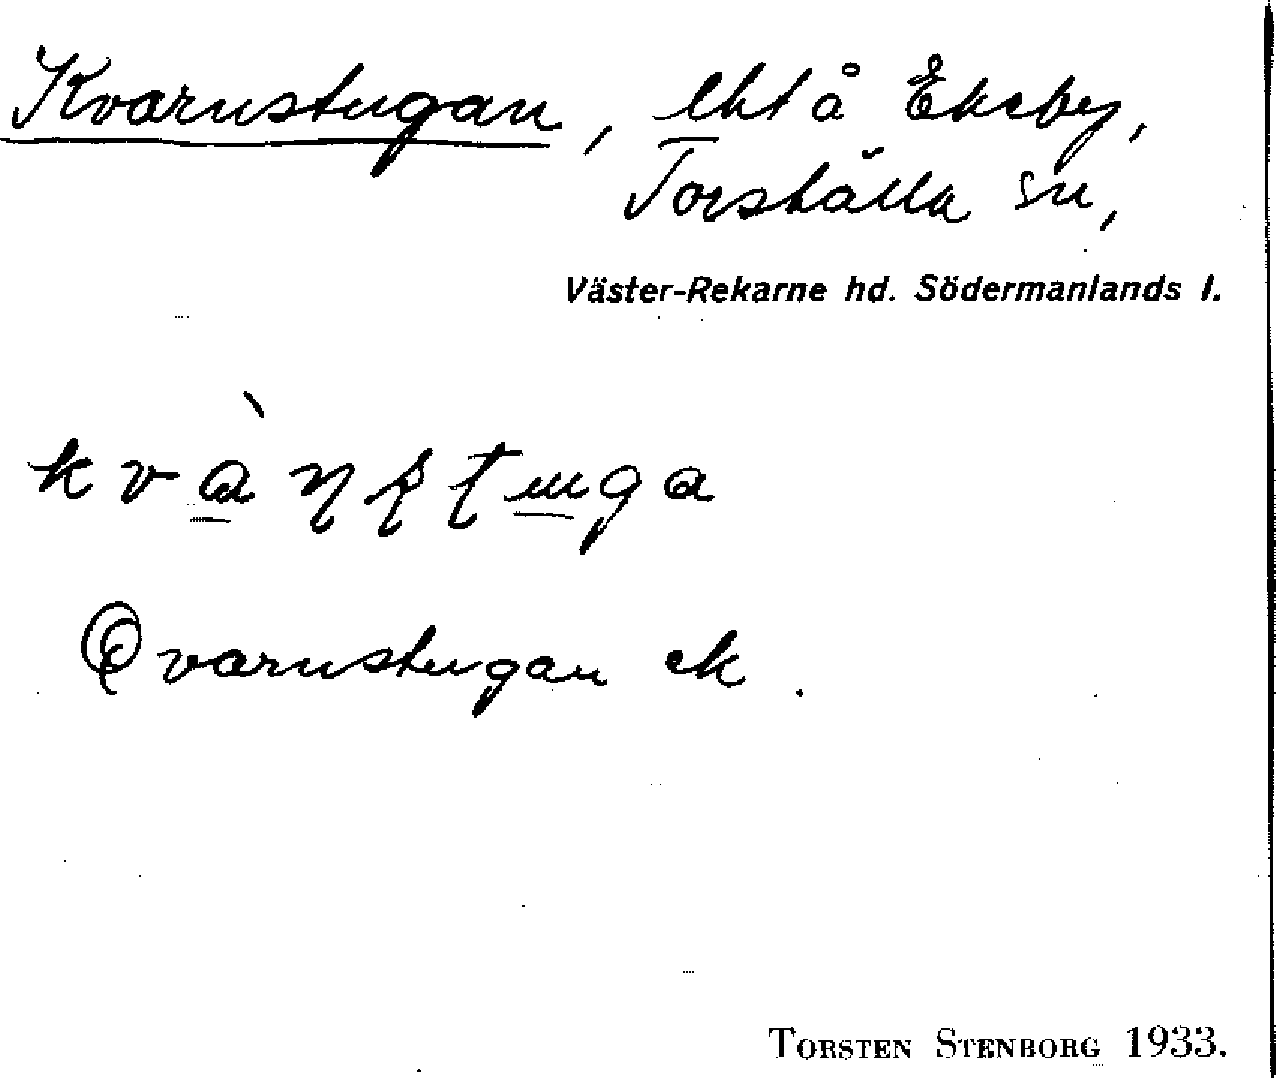 Kvarnstugan, lht å Ekeby,
Torshälla sn,
Väster-Rekarne hd. Södermanlands l.
Qvarnstugan ek.
TORSTEN STENBORG 1933.